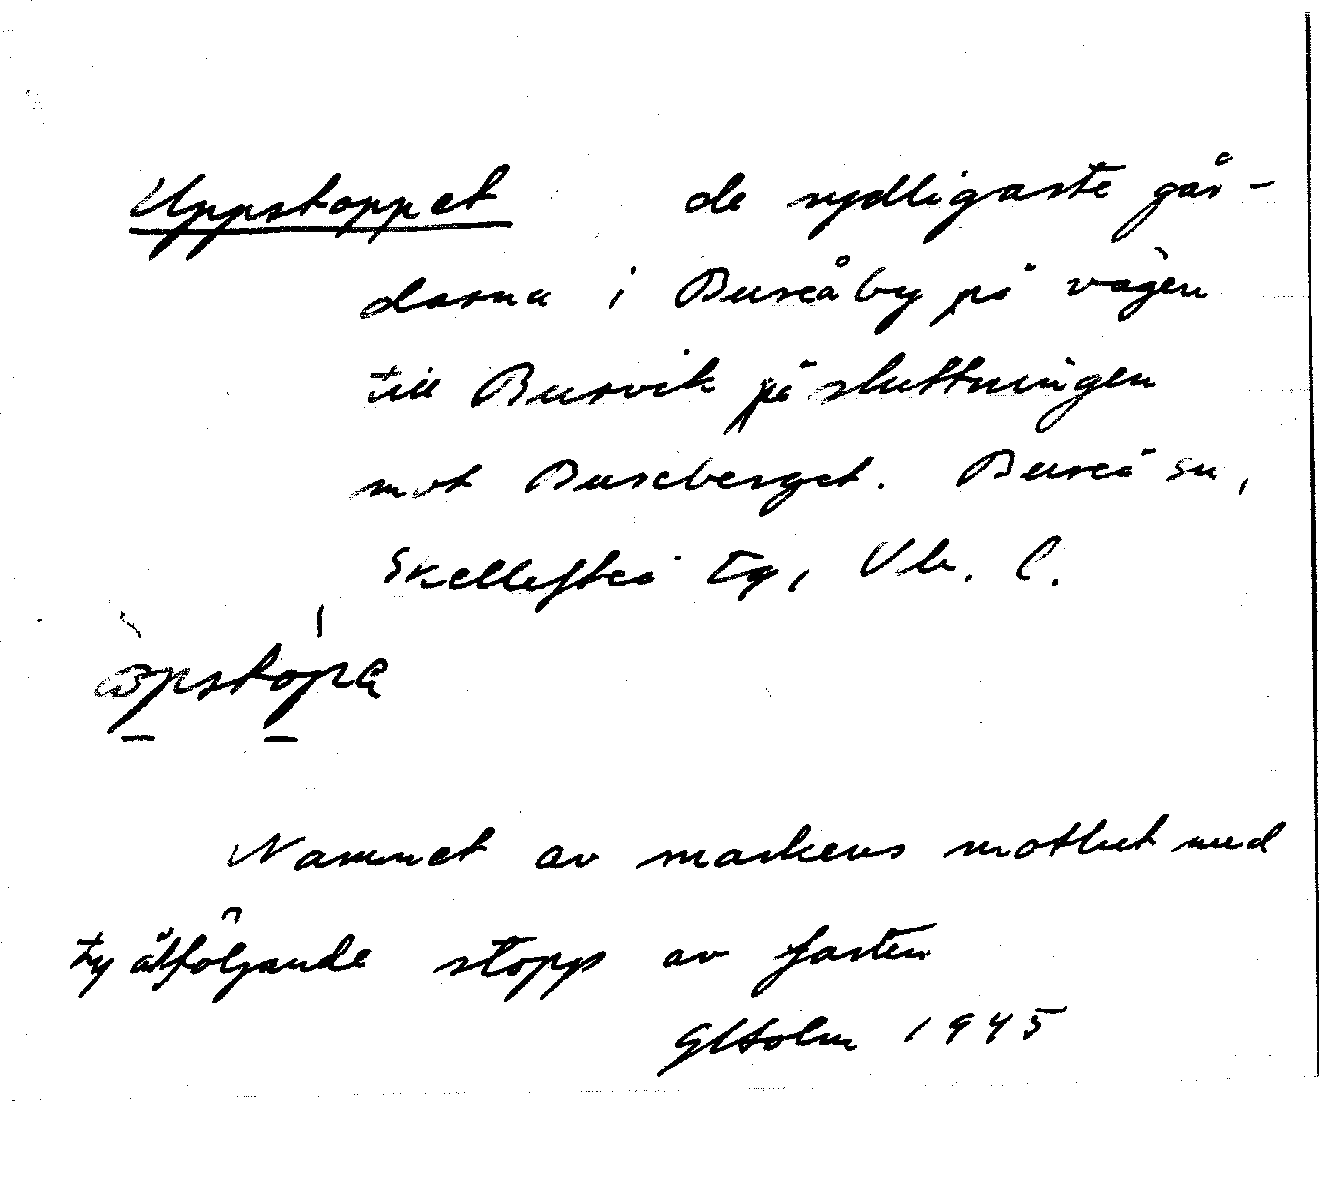 Uppstoppet de sydligaste går-
darna i Bureåby på vägen
till Burvik på sluttningen
mot Bureberget. Bureå sn,
Skellefteå tg, Vb. l.
Namnet av markens motlut med
ty åtföljande stopp av farten
GHolm 1945